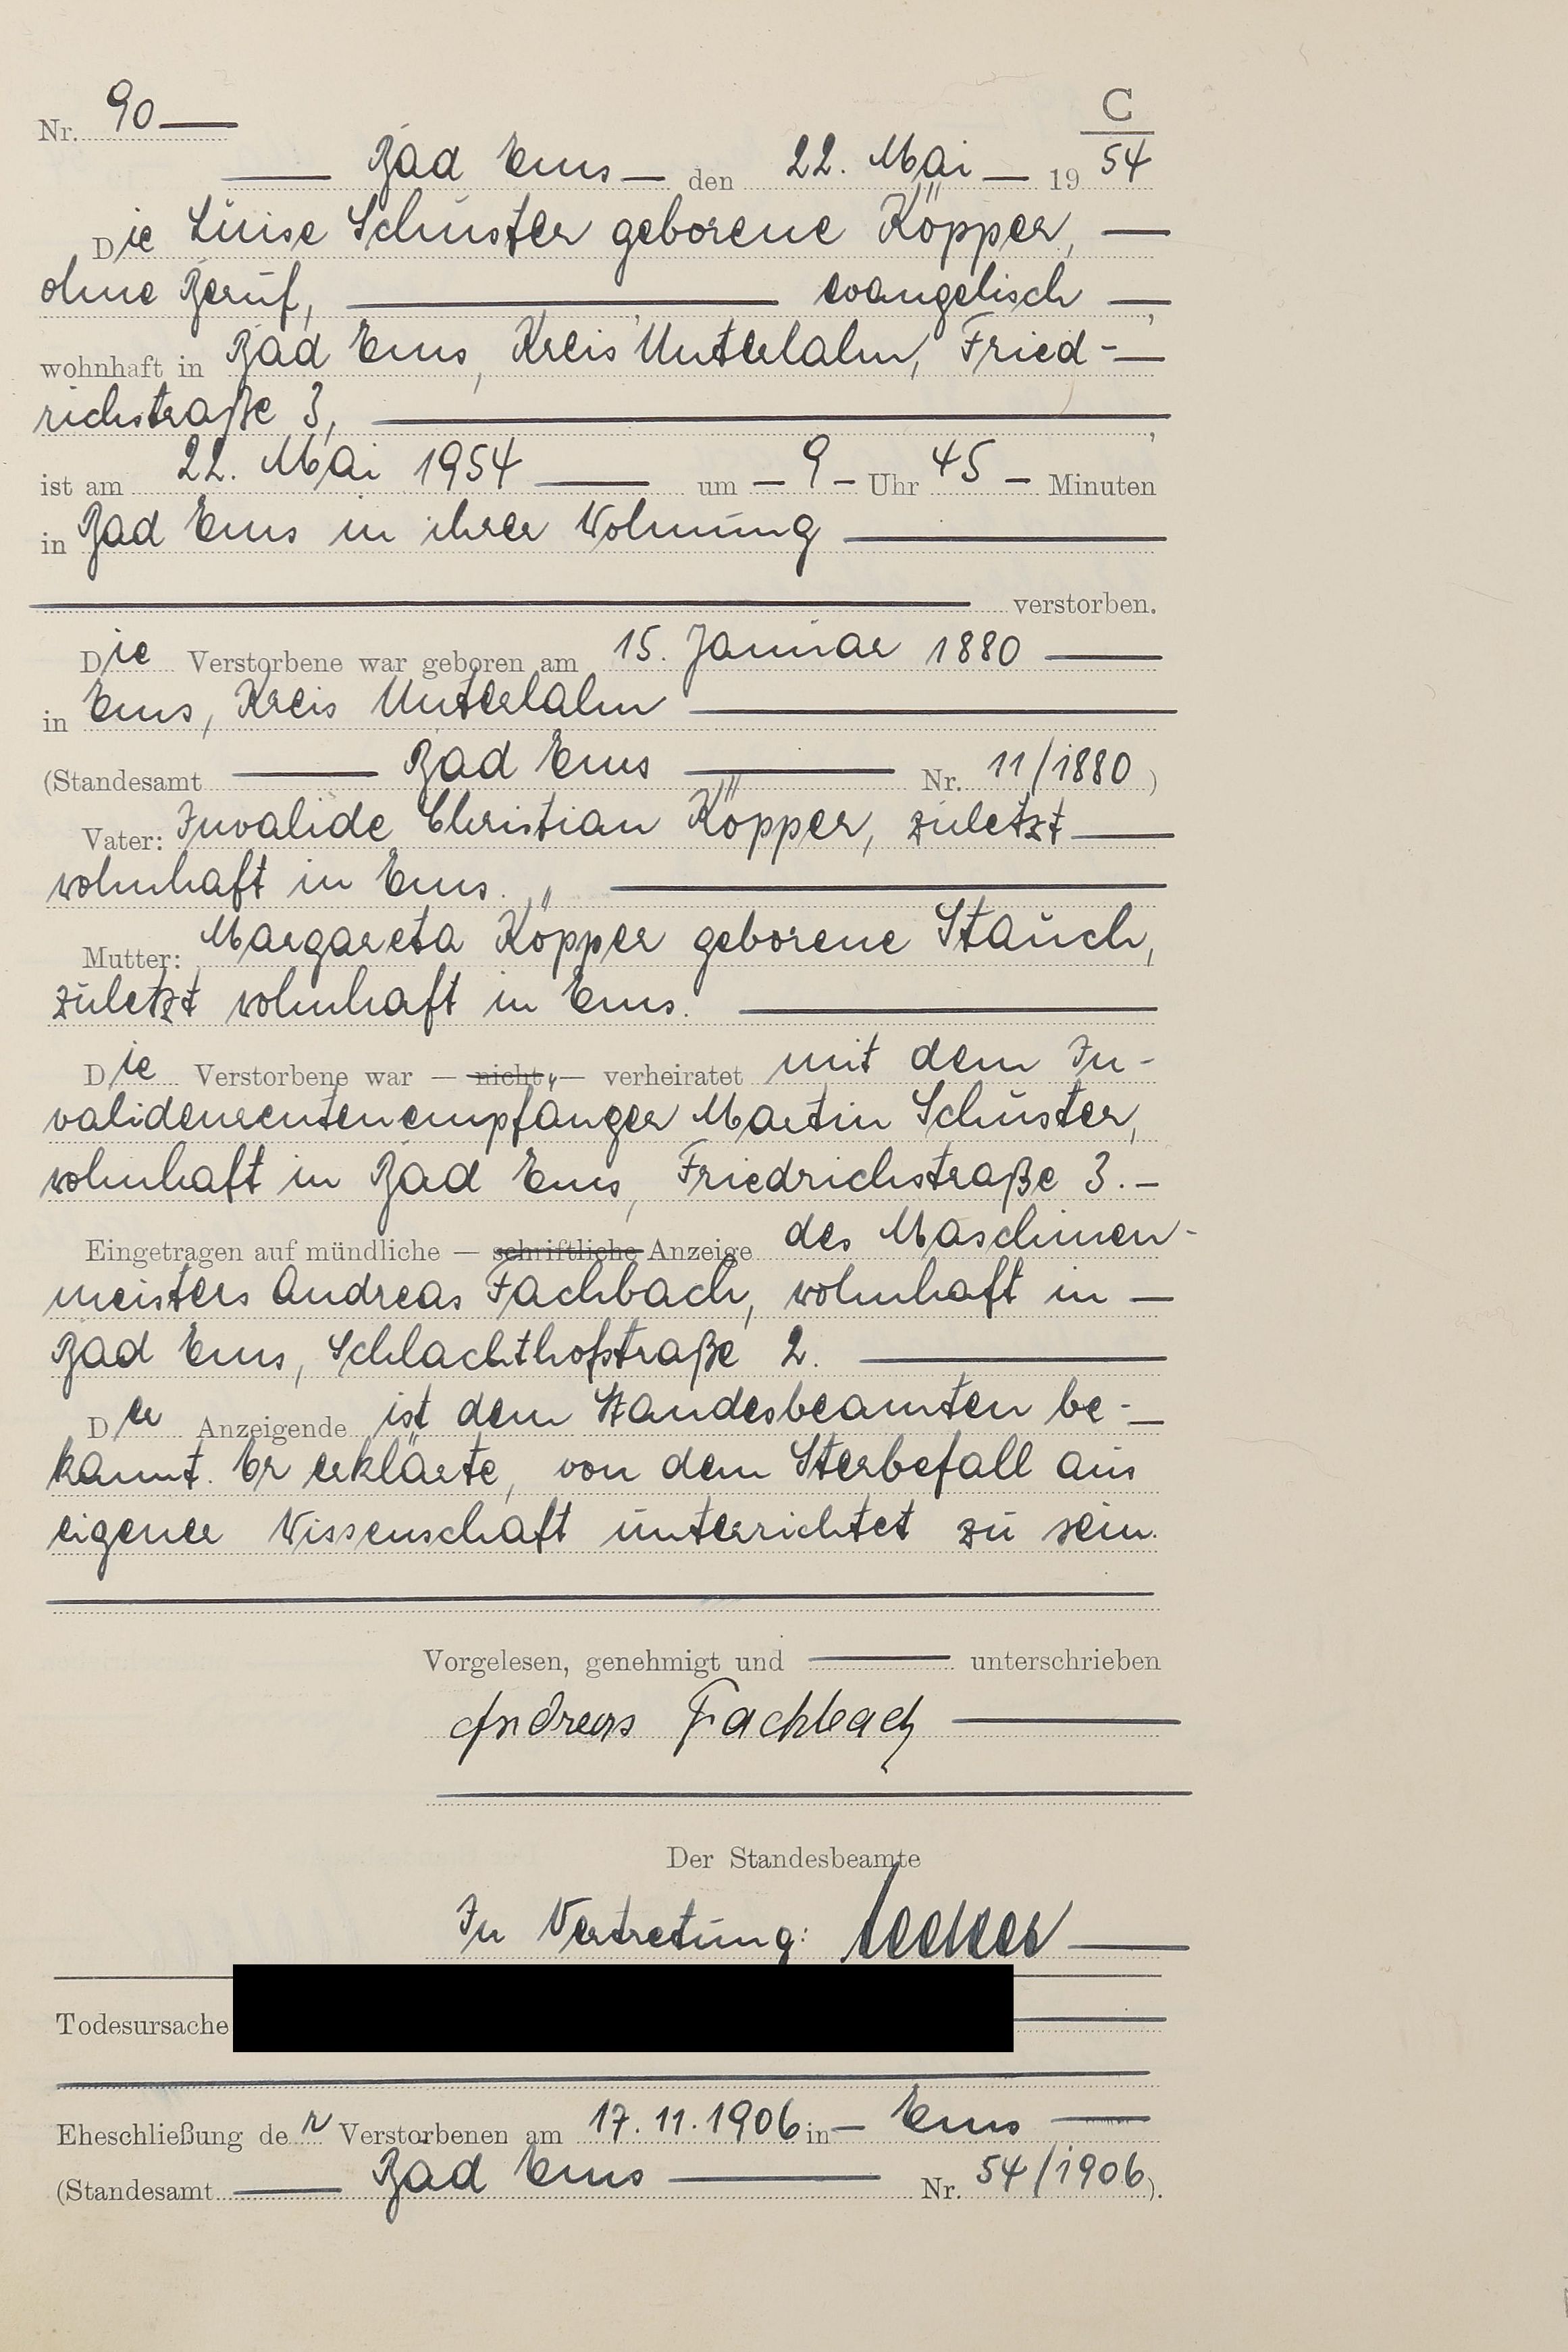 C
Nr. 90 —
— Bad Ems — den 22. Mai — 19 54
Die Luise Schuster geborene Köpper, —
ohne Beruf, — evangelisch —,
wohnhaft in Bad Ems, Kreis Unterlahn, Fried- —
richstraße 3, —,
ist am 22. Mai 1954 — um — 9 — Uhr 45 — Minuten
in Bad Ems in ihrer Wohnung —
— verstorben.
Die Verstorbene war geboren am 15. Januar 1880 —
in Ems, Kreis Unterlahn —
(Standesamt — Bad Ems — Nr. 11/1880)
Vater: Invalide Christian Köpper, zuletzt —
wohnhaft in Ems. —
Mutter: Margareta Köpper geborene Stauch,
zuletzt wohnhaft in Ems. —
Die Verstorbene war — nicht — verheiratet mit dem In-
validenrentenempfänger Martin Schuster,
wohnhaft in Bad Ems, Friedrichstraße 3. —
Eingetragen auf mündliche — schriftliche Anzeige des Maschinen-
meisters Andreas Fachbach, wohnhaft in —
Bad Ems, Schlachthofstraße 2. —
Der Anzeigende ist dem Standesbeamten be- —
kannt. Er erklärte, von dem Sterbefall aus
eigener Wissenschaft unterrichtet zu sein.
Vorgelesen, genehmigt und — unterschrieben
Andreas Fachbach —
Der Standesbeamte
In Vertretung: —
Todesursache
Eheschließung der Verstorbenen am 17.11.1906 in — Ems —
(Standesamt — Bad Ems — Nr. 54/1906).